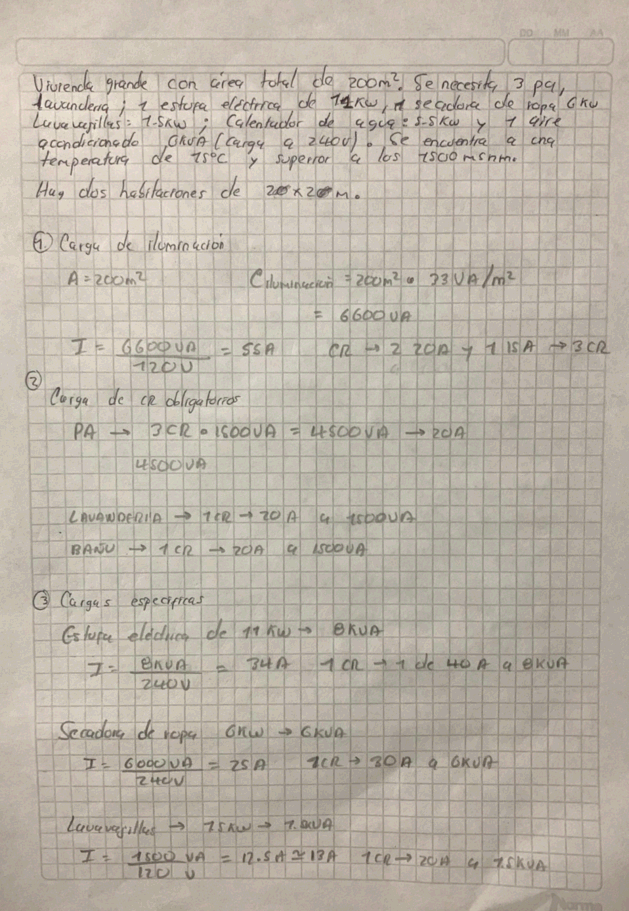 Vivienda grande con área total de 200m². Se necesita 3 pa,
lavandería; 1 estufa eléctrica de 11KW, 1 secadora de ropa 6KW
Lavavajillas = 1.5KW; Calentador de agua = 5.5KW y 1 aire
acondicionado 6KVA (carga a 240V). Se encuentra a una
temperatura de 15°C y superior a los 1500 msnm.
Hay dos habitaciones de 20x20m.
① Carga de iluminación
A = 200m² Ciluminación = 200m² • 33VA/m²
= 6600VA
I = 6600VA / 120V = 55A CR → 2 20A y 1 15A → 3CR
②
Carga de CR obligatorios
PA → 3CR • 1500VA = 4500VA → 20A
4500VA
LAVANDERIA → 1CR → 20A a 1500VA
BAÑO → 1CR → 20A a 1500VA
③ Cargas especificas
Estufa eléctrica de 11KW → 8KVA
I = 8KVA / 240V = 34A 1CR → 1 de 40A a 8KVA
Secadora de ropa 6KW → 6KVA
I = 6000VA / 240V = 25A 1CR → 30A a 6KVA
Lavavajillas → 1.5KW →
I = 1500VA / 120V = 12.5A ≅ 13A 1CR → 20A a 1.5KVA
Norma